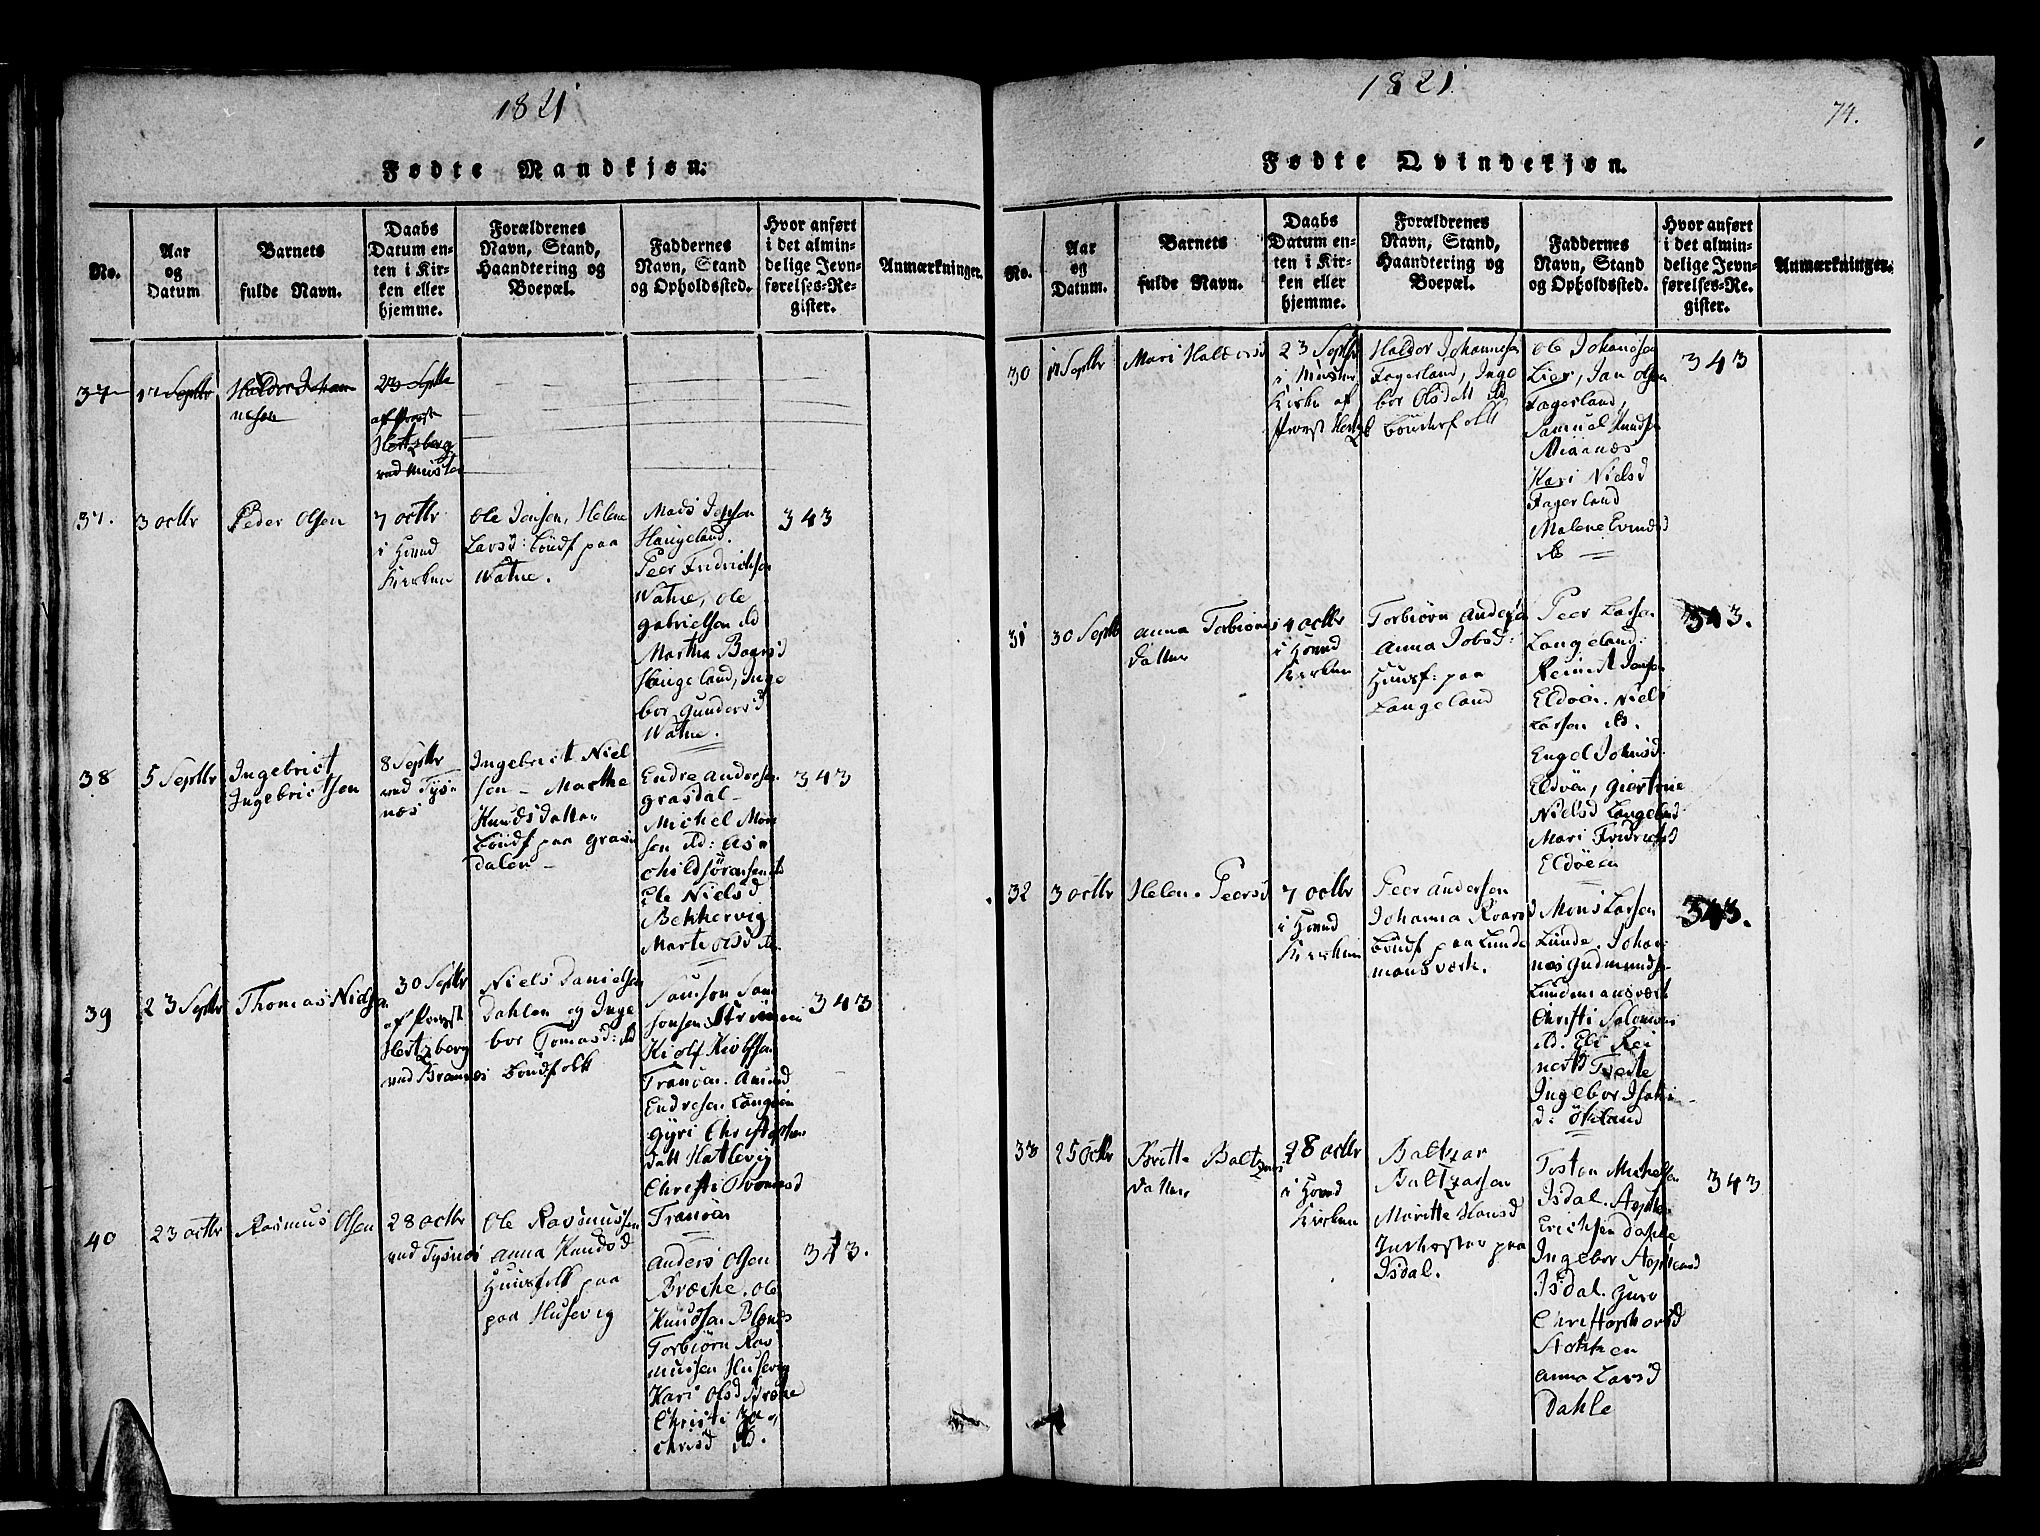 1821
Fødte Mandkjøn.
No.
Aar
og
Datum
Barnets
fulde Navn.
Daabs
Datum en-
ten i Kir-
ken eller
hjemme.
Forældrenes
Navn, Stand,
Haandtering og
Boepæl.
Faddernes
Navn, Stand
og Opholdssted.
Hvor anført
i det almin-
delige Jevn-
førelses-Re-
gister.
Anmærkninger.
37
17 Septbr
Haldor Johan
nesen
23 Septbr
af Provst
Hertzberg
ved Muster
37.
3 octbr
Peder Olsen
7 octbr
i Hovud
Kirken
Ole Jonsen, Helene
Larsd: bøndf paa
Watne.
Mads Jepsen
Haugeland.
Peer Fredrichsen
Watne, Ole
gabrielsen ibd
Martha
Haugeland, Inge
bor Gundersd
Watne.
343
38
5 Septbr
Ingebrict
Ingebrictsen
8 Septbr
ved Tys-
næs
Ingebrict Niel
sen - Marthe
Knudsdatter
bøndf paa Grasn
dalen -
Endre Andersen
grasdal -
Michel Mon
sen ibd: As-
child sörensen ib
Ele Nielsd
Bekkervig
Marte Olsd ib.
343
39
23 Septbr
Thomas Nielsen
30 Septbr
af Provst
Hertzberg
ved Bremnes
Niels Danielsen
Dahlen og Inge
bor Tomasd: ibd
bøndfolk
Samson Sam
sonsen Strömen
Kiolf Kiolfsen
Tranöen. Amund
Endresen Langöen
Gyri Christophers
datt Hatlevig
Christi
Tranöen
343
40
23 octbr
Rasmus Olsen
28 octbr
ved Tysnes
Ole Rasmussen
Anna Knudsd
Huusfolk paa
paa Husevig
Anders Olsen
Bræcke. Ole
Knudsen
Torbiörn Ras
mussen Husevig
Kari Olsd Bræke
Christi Za-
chrisd ibd.
343.
1821
74.
Fødte Qvindekjøn.
No.
Aar
og
Datum.
Barnets
fulde Navn.
Daabs
Datum en-
ten i Kir-
ken eller
hjemme.
Forældrenes
Navn, Stand,
Haandtering og
Boepæl.
Faddernes
Navn, Stand
og Opholdssted.
Hvor anført
i det almin-
delige Jevn-
førelses-Re-
gister.
Anmærkninger.
30
17 Septbr
Mari Haldorsd
23 Septbr
i Muster
Kirke af
Provst Hertzb
Haldor Johannesen
Fagerland, Inge
bor Olsdatt ibd
bönderfolk
Ole Johansen
Lier, Jan Olsen
Fagerland,
Samuel Knudsen
Miaanes
Kari Nielsd
Fagerland
Malene Evindsd
ib
343
31
30 Septbr
Anna Torbiöns
datter
4 octbr
i Hovud
Kirken
Torbiörn Anders
Anna Jobsd:
Huusf: paa
Langeland
Peer Larsen
Langeland:
Reinert Jansen
Eldöen. Niels
Larsen ib.
Engel Johnsd
Eldöen, Giertrue
Nielsd Langeland
Mari Fredrichsd
Eldöen
343.
32
3 octbr
Helene Peersd
7 octbr
i Hovud
Kirken
Peer Andersen
Johanna Roarsd
bøndf paa Lunde
mansværk.
Mons Larsen
Lunde. Johan
nes Gudmundsen
Lundemansværk
Christi Salomons
ib. Eli Rei
nertsd Tveite
Ingebor Isaks
d: Ökeland
343.
33
25 octbr
Britte Baltzers
datter
28 octbr
i Hovud
Kirken
Baltzar
Baltzarsen
Maritte Hansd
Inderster paa
Isdal.
Tosten Michelsen
Isdal. Aschen
Erichsen Dahle
Ingebor
Isdal. Guro
Christophorsd
Stokken
Anna Larsd
Dahle
343